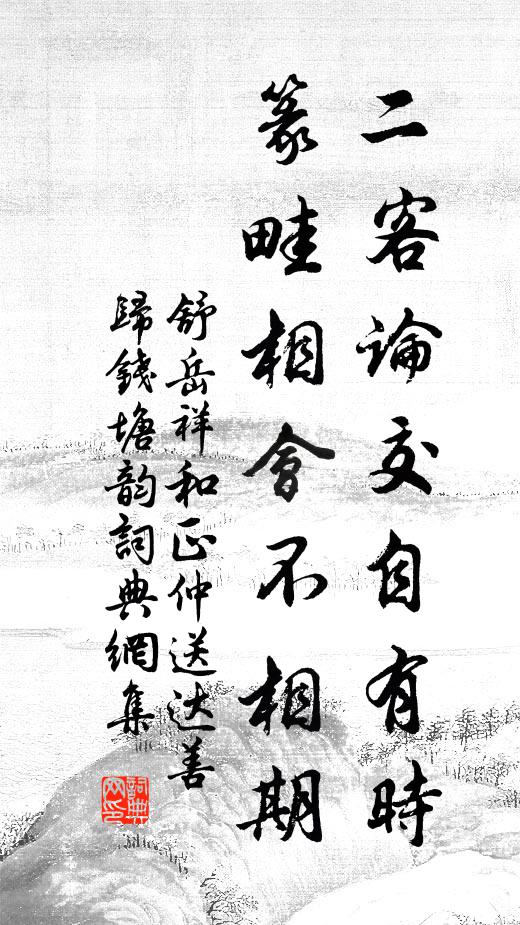 二客論交自有時
篆畦相會不相期
舒岳祥和正仲送达善
歸錢塘韵詞典網集
詞典
网印